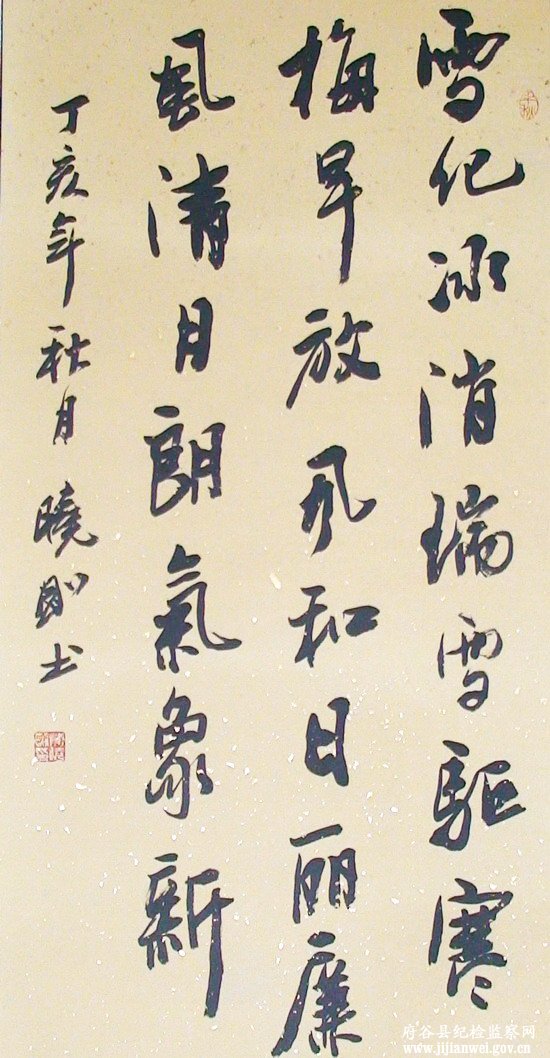 雪化冰消瑞雪驱寒
梅早放风和日丽廉
風清月朗氣象新
丁亥年秋月曉剛书
府谷县纪检监察网
www.jijianwei.gov.cn